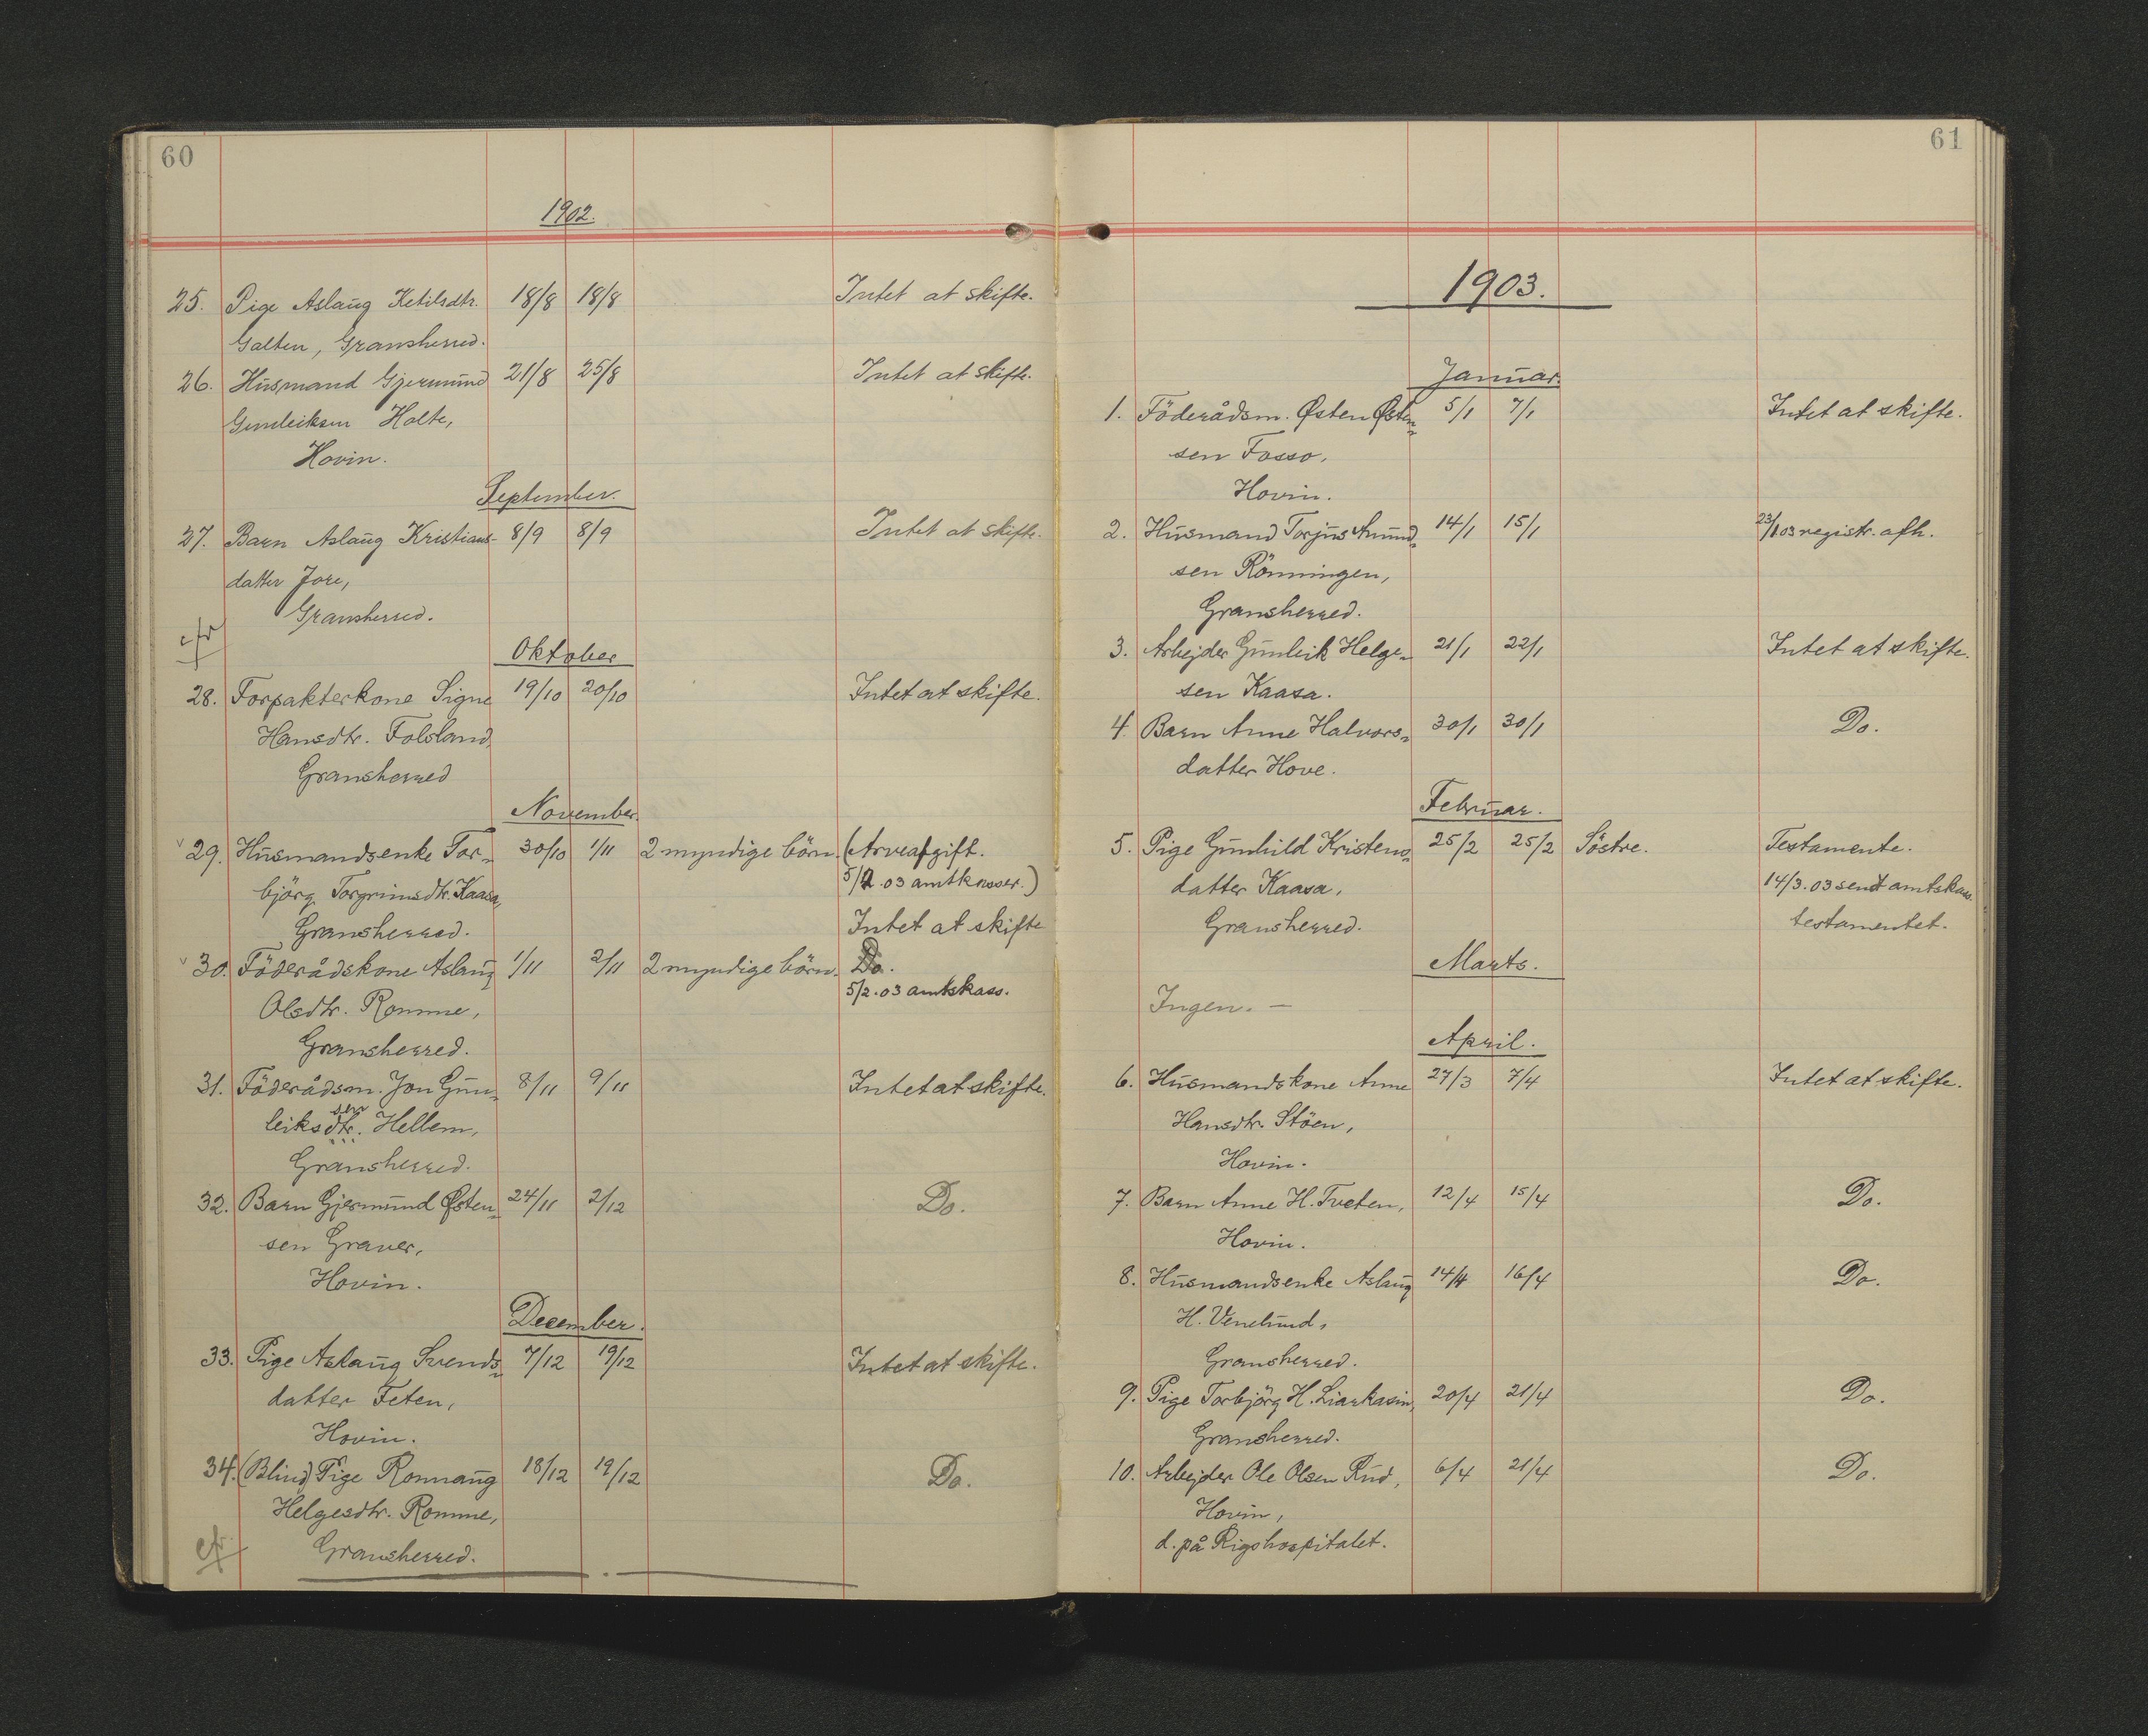 60
1902.
25. Pige Aslaug Ketilsdtr. 18/8 18/8 Intet at skifte.
Galten, Gransherred.
26. Husmand Gjermund 21/8 25/8 Intet at skifte.
Gunleiksen Holte,
Hovin.
September.
27. Barn Aslaug Kristians- 8/9 8/9 Intet at skifte.
datter Jore,
Gransherred.
cfr
Oktober
28. Forpakterkone Signe 19/10 20/10 Intet at skifte.
Hansdtr. Folsland,
Gransherred
November.
29. Husmandsenke Tor- 30/10 1/11 2 myndige börn. (Arveafgift.
björg Torgrimsdtr. Kaasa, 5/2.03 amtkasser.)
Gransherred. Intet at skifte
30. Föderådskone Aslaug 1/11 2/11 2 myndige börn. Do.
5/2.03 amtskass.
Olsdtr. Romme,
Gransherred.
31. Föderådsm. Jon Gun- 8/11 9/11 Intet at skifte.
sen
leiksdtr. Hellem,
Gransherred.
32. Barn Gjermund Østen- 24/11 2/12 Do.
sen Graver,
Hovin.
December.
33. Pige Aslaug Svends- 7/12 19/12 Intet at skifte.
datter Feten,
Hovin.
34. (Blind) Pige Ronnaug 18/12 19/12 Do.
Helgesdtr. Romme,
cfr Gransherred.
61
1903.
Januar.
1. Föderådsm. Østen Østen- 5/1 7/1 Intet at skifte.
sen Fosso,
Hovin.
2. Husmand Torjus Amund- 14/1 15/1 23/1.03 registr. afh.
sen Rönningen,
Gransherred.
3. Arbejder Gunleik Helge- 21/1 22/1 Intet at skifte.
sen Kaasa.
4. Barn Anne Halvors- 30/1 30/1 Do.
datter Hove.
Februar.
5. Pige Gunhild Kristens- 25/2 25/2 Söstre. Testamente.
datter Kaasa, 14/3.03 sendt amtskass.
Gransherred. testamentet.
Marts.
Ingen. —
April.
6. Husmandskone Anne 27/3 7/4 Intet at skifte.
Hansdtr. Stöen,
Hovin.
7. Barn Anne H. Tveten, 12/4 15/4 Do.
Hovin.
8. Husmandsenke Aslaug 14/4 16/4 Do.
H. Venelund,
Gransherred.
9. Pige Torbjörg H. Liarkasin, 20/4 21/4 Do.
Gransherred.
10. Arbejder Ole Olsen Rud, 6/4 21/4 Do.
Hovin,
d. på Rigshospitalet.